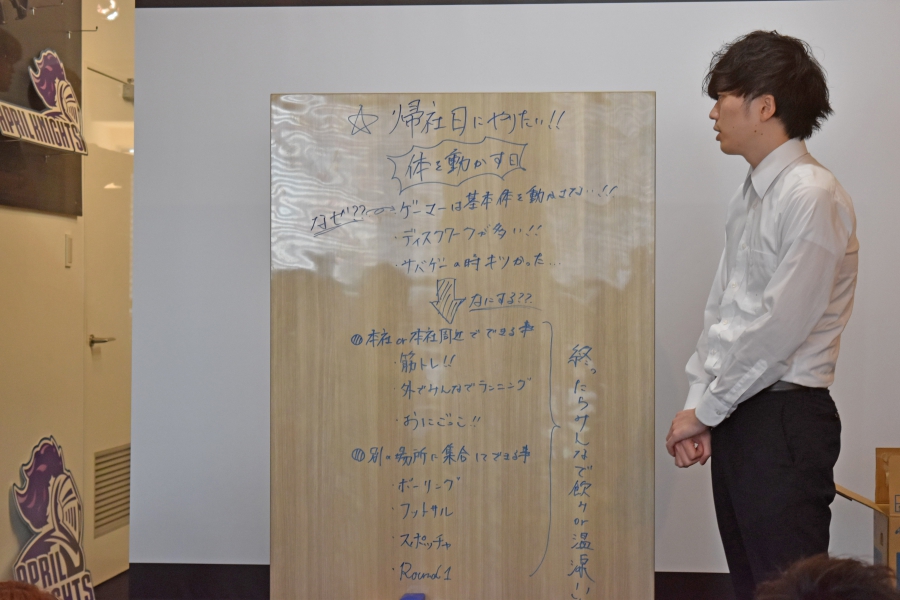 APRIL KNIGHTS
☆ 帰社日にやりたい!!
体を動かす日
なぜ??
ゲーマーは基本体を動かさない…!!
・ディスクワークが多い!!
・サバゲーの時キツかった…
なにする??
本社or本社周辺でできる事
・筋トレ!!
・外でみんなでランニング
・おにごっこ!!
別の場所に集合してできる事
・ボーリング
・フットサル
・スポッチャ
・Round1
終ったらみんなで飲みor温泉!!
APRIL KNIGHTS